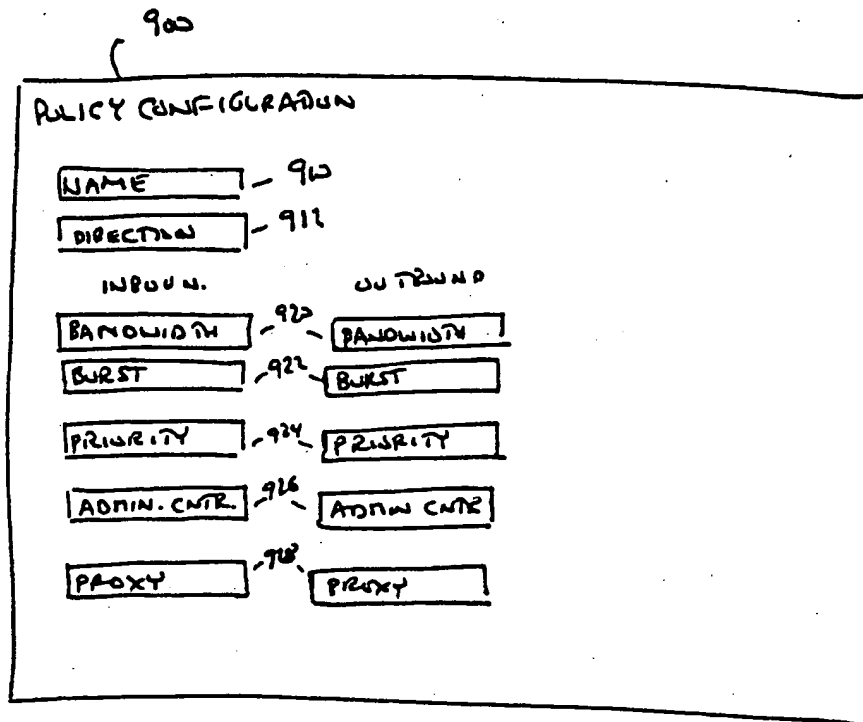 900
POLICY CONFIGURATION
NAME 910
DIRECTION 912
INBOUN. OUTBOUND
BANDWIDTH 920 BANDWIDTH
BURST 922 BURST
PRIORITY 924 PRIORITY
ADMIN. CNTR. 926 ADMIN CNTR
PROXY 928 PROXY